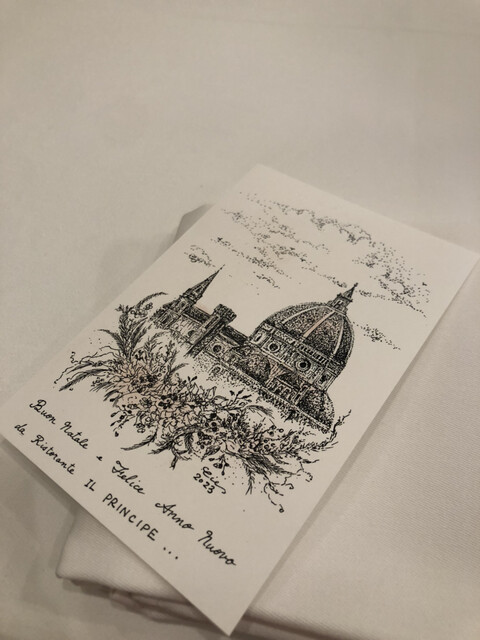 2023
Buon Natale e Felice Anno Nuovo
da Ristorante IL PRINCIPE ...